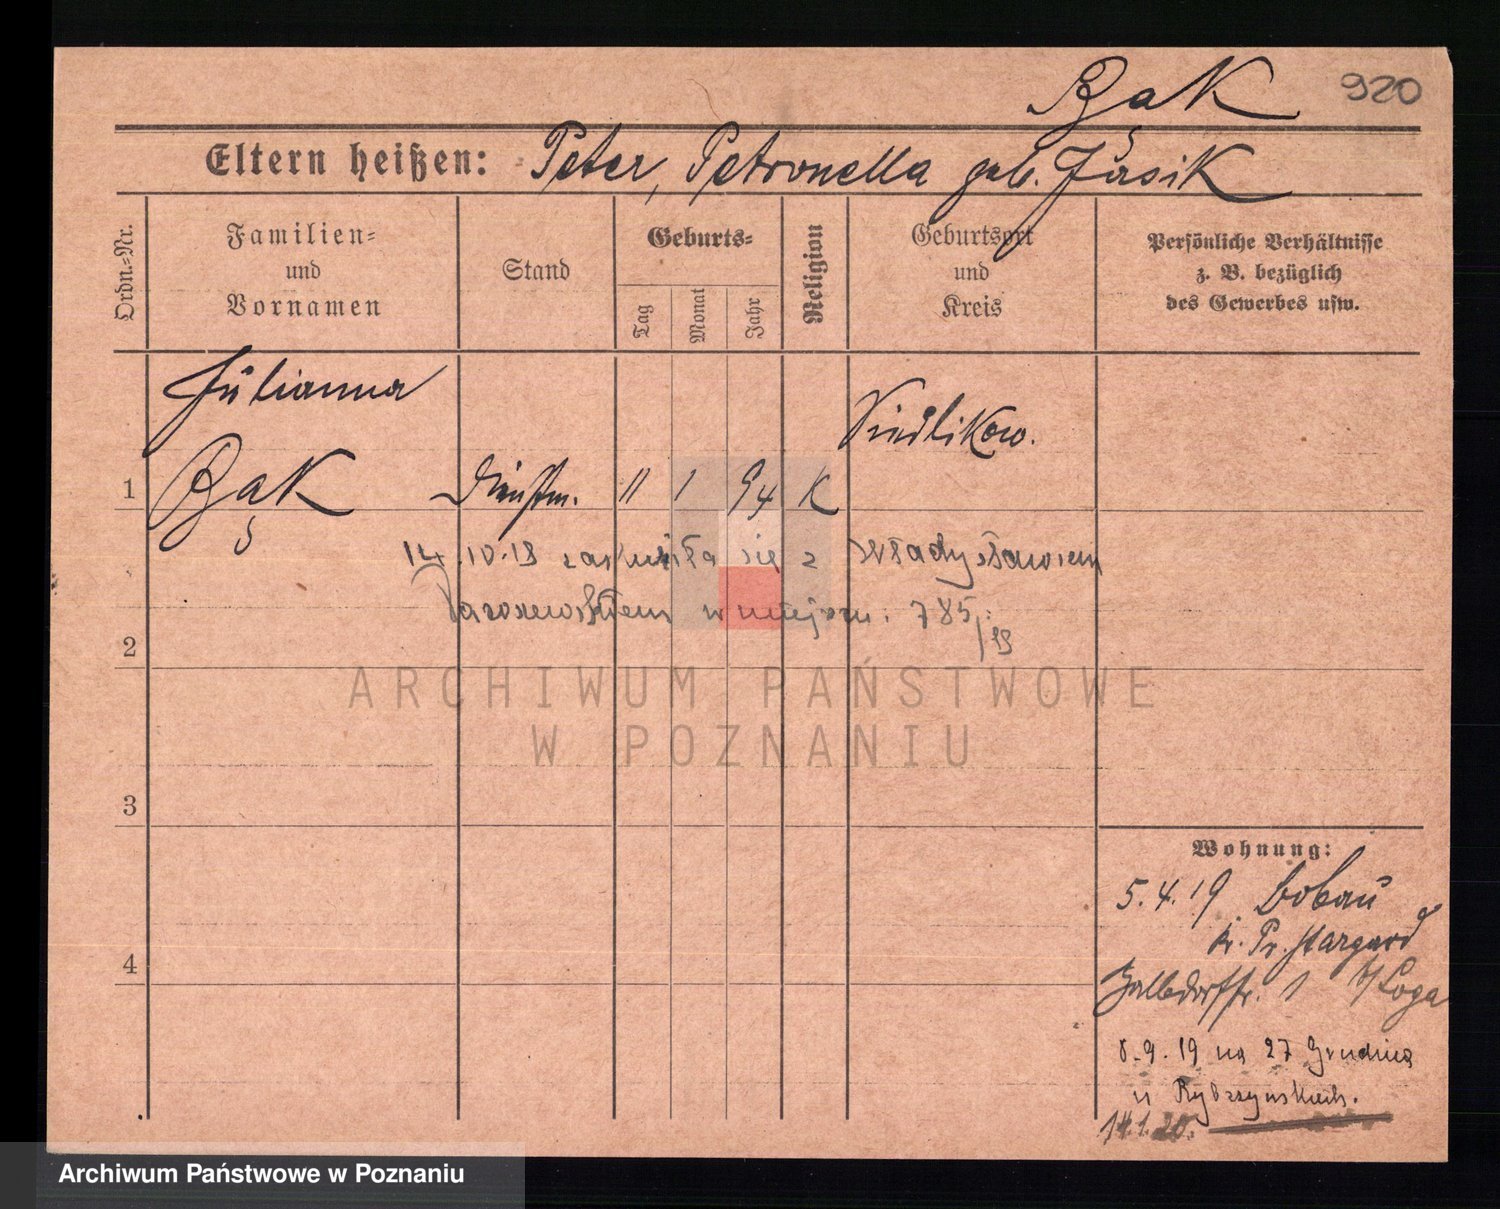 Bąk 920
Eltern heißen: Peter, Petronella geb. Jusik
Ordn.-Nr.
Familien-
und
Vornamen
Stand
Geburts-
Tag
Monat
Jahr
Religion
Geburtsort
und
Kreis
Persönliche Verhältnisse
z. B. bezüglich
des Gewerbes usw.
Julianna
Siedlikow.
1 Bąk Dienstm. 11 1 94 K
14.10.19 się z Władysławem
w miejscu. 785/19
2
ARCHIWUM PAŃSTWOWE
W POZNANIU
3
Wohnung:
5.4.19 Bobau
Kr. Pr. Stargard
4
1 b/Loga
8.9.19 na 27 Grudnia
u Rybczyńskich.
14.1.20.
Archiwum Państwowe w Poznaniu